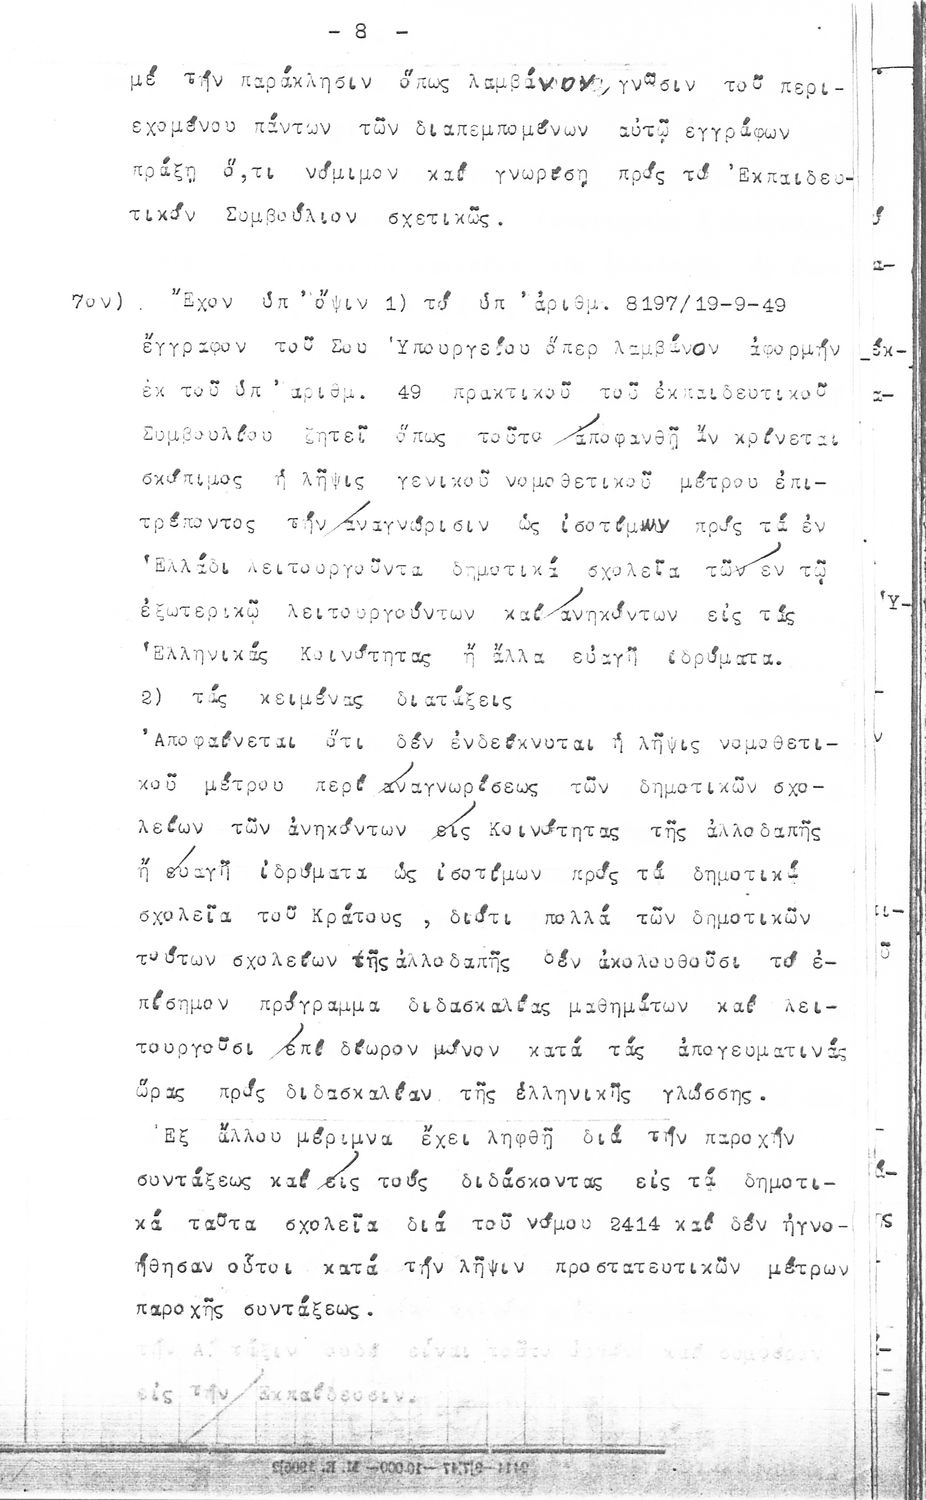 - 8 -
μέ τήν παράκλησιν ὅπως λαμβάνον γνῶσιν τοῦ περι-
εχομένου πάντων τῶν διαπεμπομένων αὐτῷ εγγράφων
πράξῃ ὅ,τι νόμιμον καί γνωρίσῃ πρός τό Ἐκπαιδευ-
τικόν Συμβούλιον σχετικῶς.
7ον) . Ἔχον ὑπ'ὄψιν 1) τό ὑπ'ἀριθμ. 8197/19-9-49
ἔγγραφον τοῦ Σου Ὑπουργείου ὅπερ λαμβάνον ἀφορμήν
ἐκ τοῦ ὑπ'ἀριθμ. 49 πρακτικοῦ τοῦ ἐκπαιδευτικοῦ
Συμβουλίου ζητεῖ ὅπως τοῦτο ἀποφανθῇ ἄν κρίνεται
σκόπιμος ἡ λῆψις γενικοῦ νομοθετικοῦ μέτρου ἐπι-
τρέποντος τήν ἀναγνώρισιν ὡς ἰσοτίμων πρός τά ἐν
Ἑλλάδι λειτουργοῦντα δημοτικά σχολεῖα τῶν ἐν τῷ
ἐξωτερικῷ λειτουργούντων καί ἀνηκόντων εἰς τάς
Ἑλληνικάς Κοινότητας ἤ ἄλλα εὐαγῆ ἱδρύματα.
2) τάς κειμένας διατάξεις
Ἀποφαίνεται ὅτι δέν ἐνδείκνυται ἡ λῆψις νομοθετι-
κοῦ μέτρου περί ἀναγνωρίσεως τῶν δημοτικῶν σχο-
λείων τῶν ἀνηκόντων εἰς Κοινότητας τῆς ἀλλοδαπῆς
ἤ εὐαγῆ ἱδρύματα ὡς ἰσοτίμων πρός τά δημοτικά
σχολεῖα τοῦ Κράτους , διότι πολλά τῶν δημοτικῶν
τούτων σχολείων τῆς ἀλλοδαπῆς δέν ἀκολουθοῦσι τό ἐ-
πίσημον πρόγραμμα διδασκαλίας μαθημάτων καί λει-
τουργοῦσι ἐπί δίωρον μόνον κατά τάς ἀπογευματινάς
ὥρας πρός διδασκαλίαν τῆς ἑλληνικῆς γλώσσης.
Ἐξ ἄλλου μέριμνα ἔχει ληφθῆ διά τήν παροχήν
συντάξεως καί εἰς τούς διδάσκοντας εἰς τά δημοτι-
κά ταῦτα σχολεῖα διά τοῦ νόμου 2414 καί δέν ἠγνο-
ήθησαν οὗτοι κατά τήν λῆψιν προστατευτικῶν μέτρων
παροχῆς συντάξεως.
εἰς τήν Ἐκπαίδευσιν.